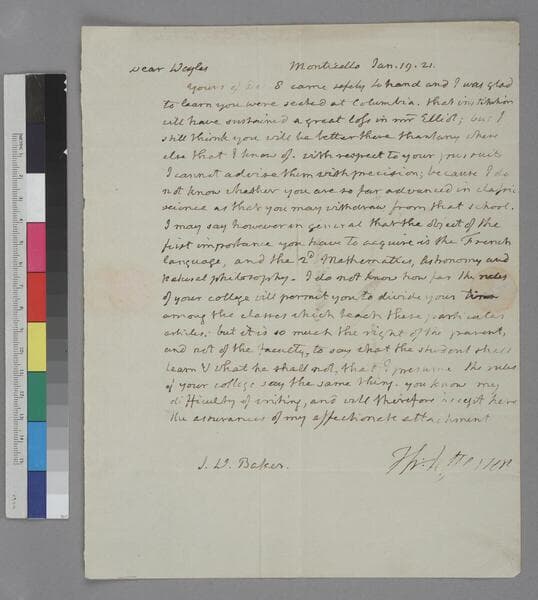 Dear Wayles Monticello Jan. 19. 21.
Yours of 8 came safely to hand and I was glad
to learn you were seated at Columbia. that institution
will have sustained a great loss in mr Elliot; but I
still think you will be better there than any where
else that I know of. with respect to your pursuits
I cannot advise them with precision; because I do
not know whether you are so far advanced in classic
science as that you may withdraw from that school.
I may say however in general that the object of the
first importance you have to acquire is the French
language, and the 2d Mathematics, Astronomy and
natural philosophy. I do not know how far the rules
of your college will permit you to divide your time
among the classes which teach these particular
articles: but it is so much the right of the parent,
and not of the Faculty, to say what the student shall
learn & what he shall not, that I presume the rules
of your college say the same thing. you know my
difficulty of writing, and will therefore accept here
the assurances of my affectionate attachment
Th: Jefferson
J. W. Baker.